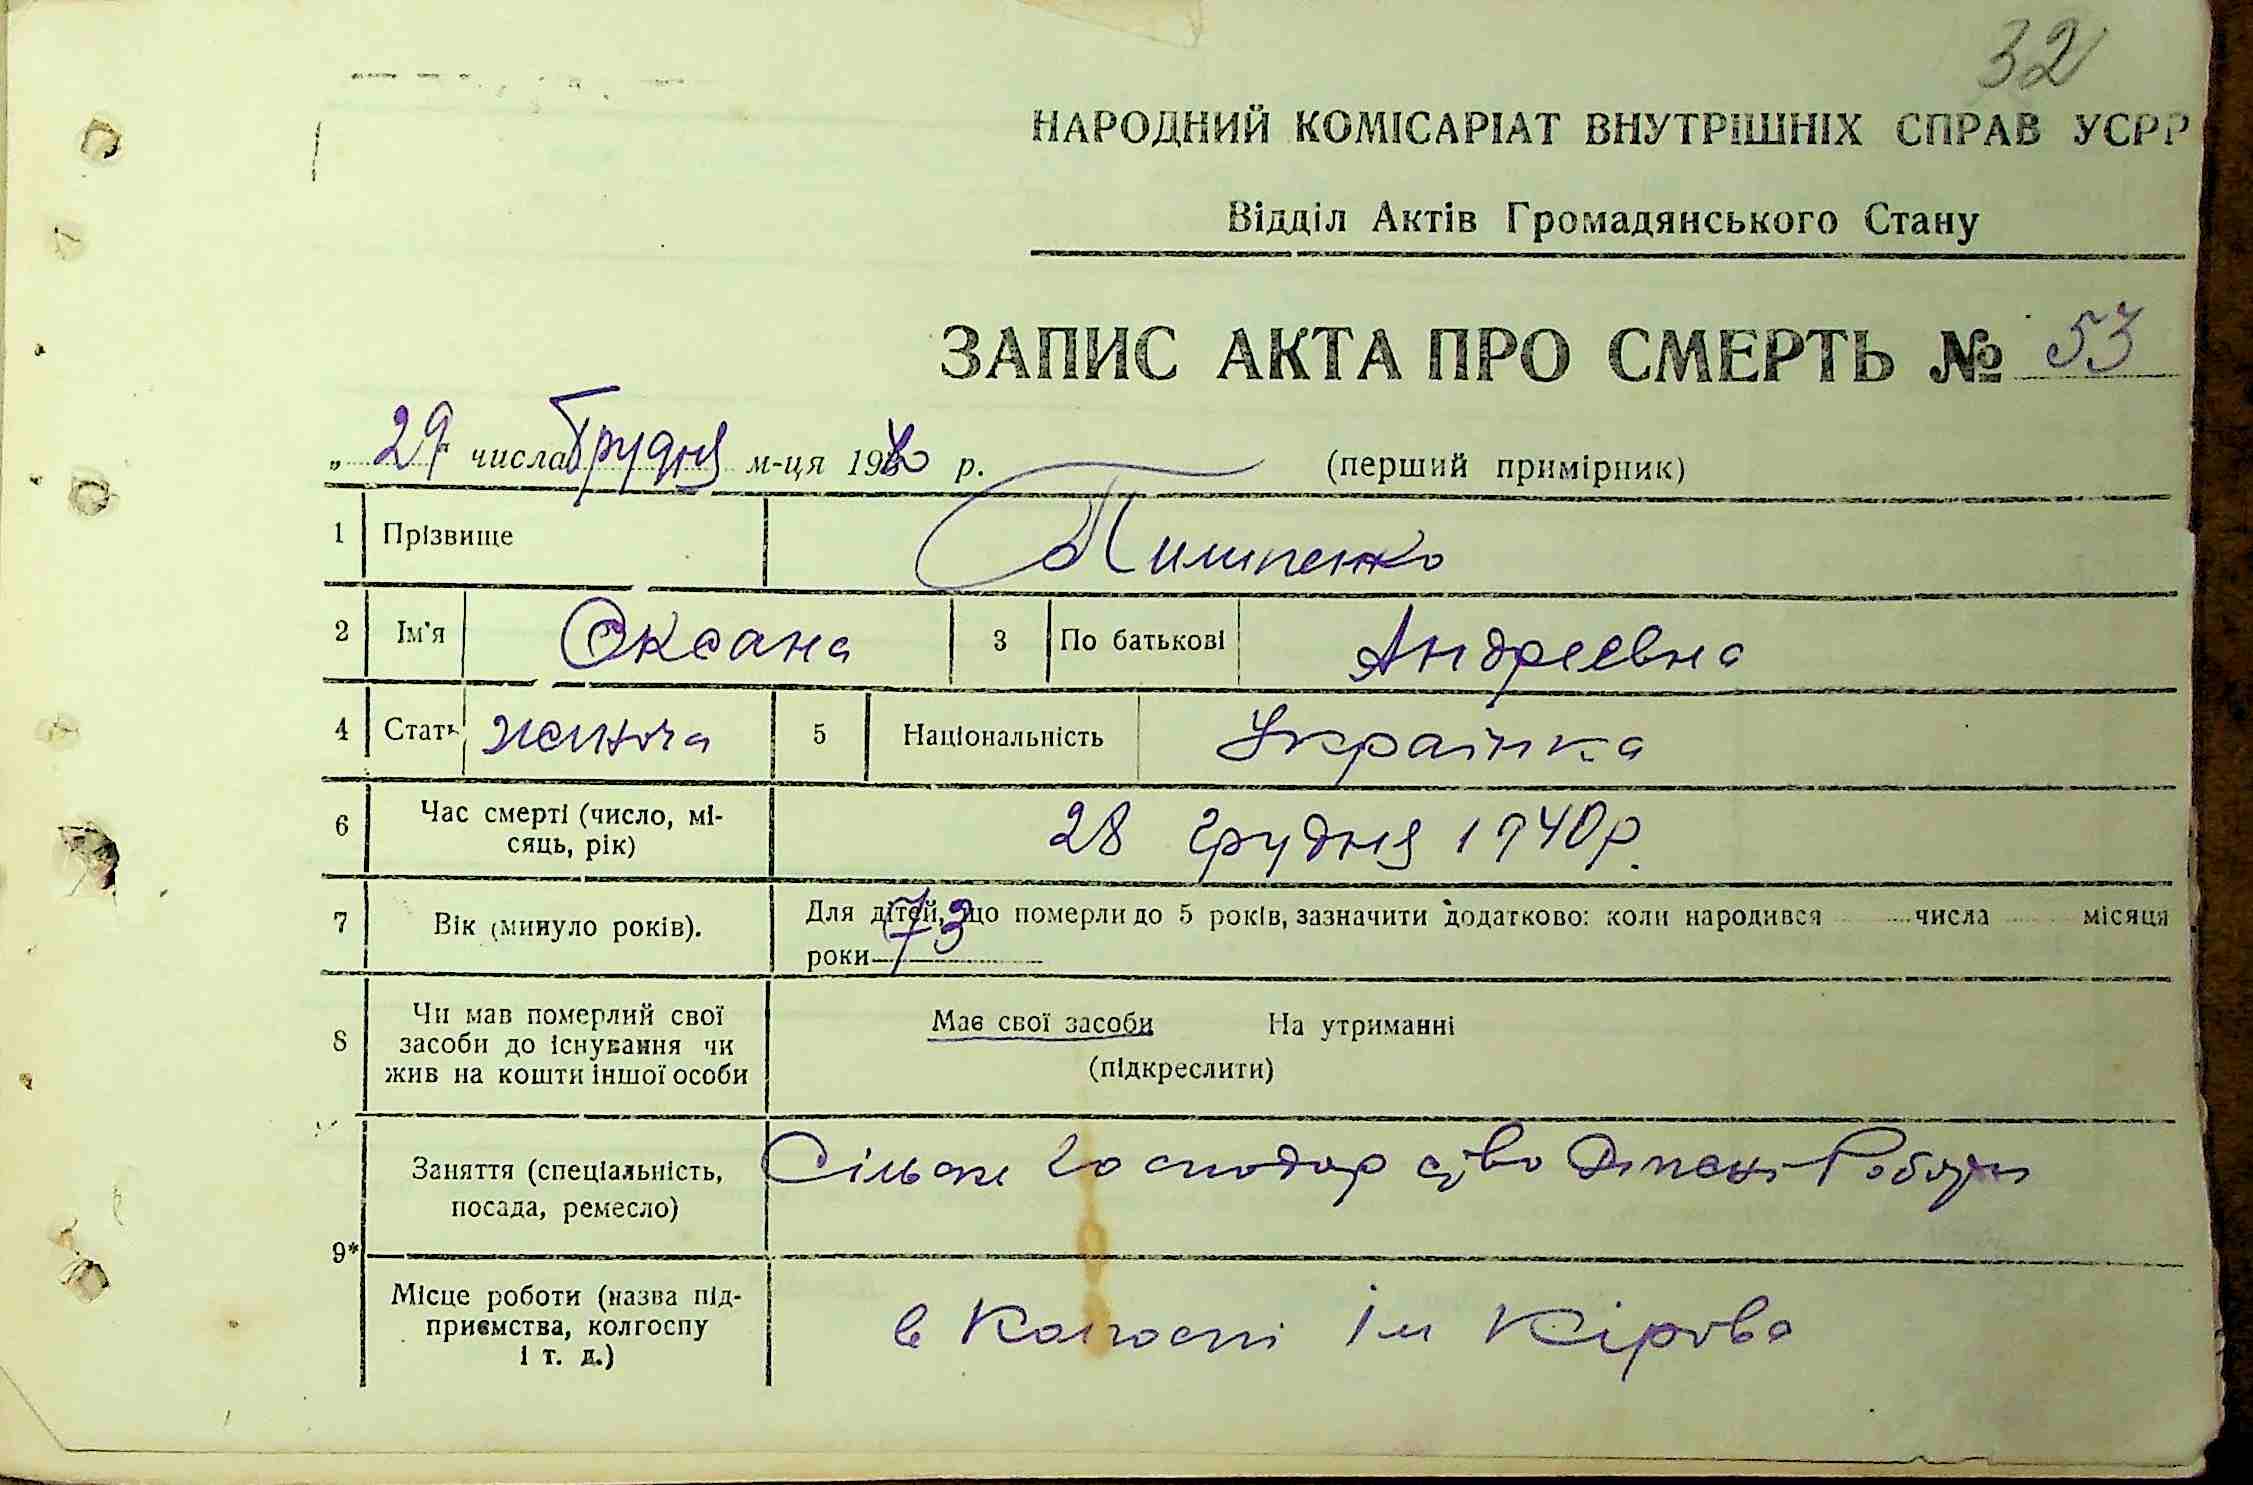 32
НАРОДНИЙ КОМІСАРІАТ ВНУТРІШНІХ СПРАВ УСРР
Відділ Актів Громадянського Стану
ЗАПИС АКТА ПРО СМЕРТЬ № 53
„29 числа Грудня м-ця 1940 р. (перший примірник)
1 Прізвище
2 Ім'я Оксана 3 По батькові Андреевна
4 Стать жиноча 5 Національність Українка
6 Час смерті (число, мі-
сяць, рік) 28 грудня 1940р.
7 Вік (минуло років). Для дітей, що померли до 5 років, зазначити додатково: коли народився числа місяця
роки 73
8 Чи мав померлий свої
засоби до існування чи
жив на кошти іншої особи
Має свої засоби На утриманні
(підкреслити)
9* Заняття (спеціальність,
посада, ремесло) Сільске Господарство
Місце роботи (назва під-
приємства, колгоспу
і т. д.)
в Колгоспі Ім Кірова